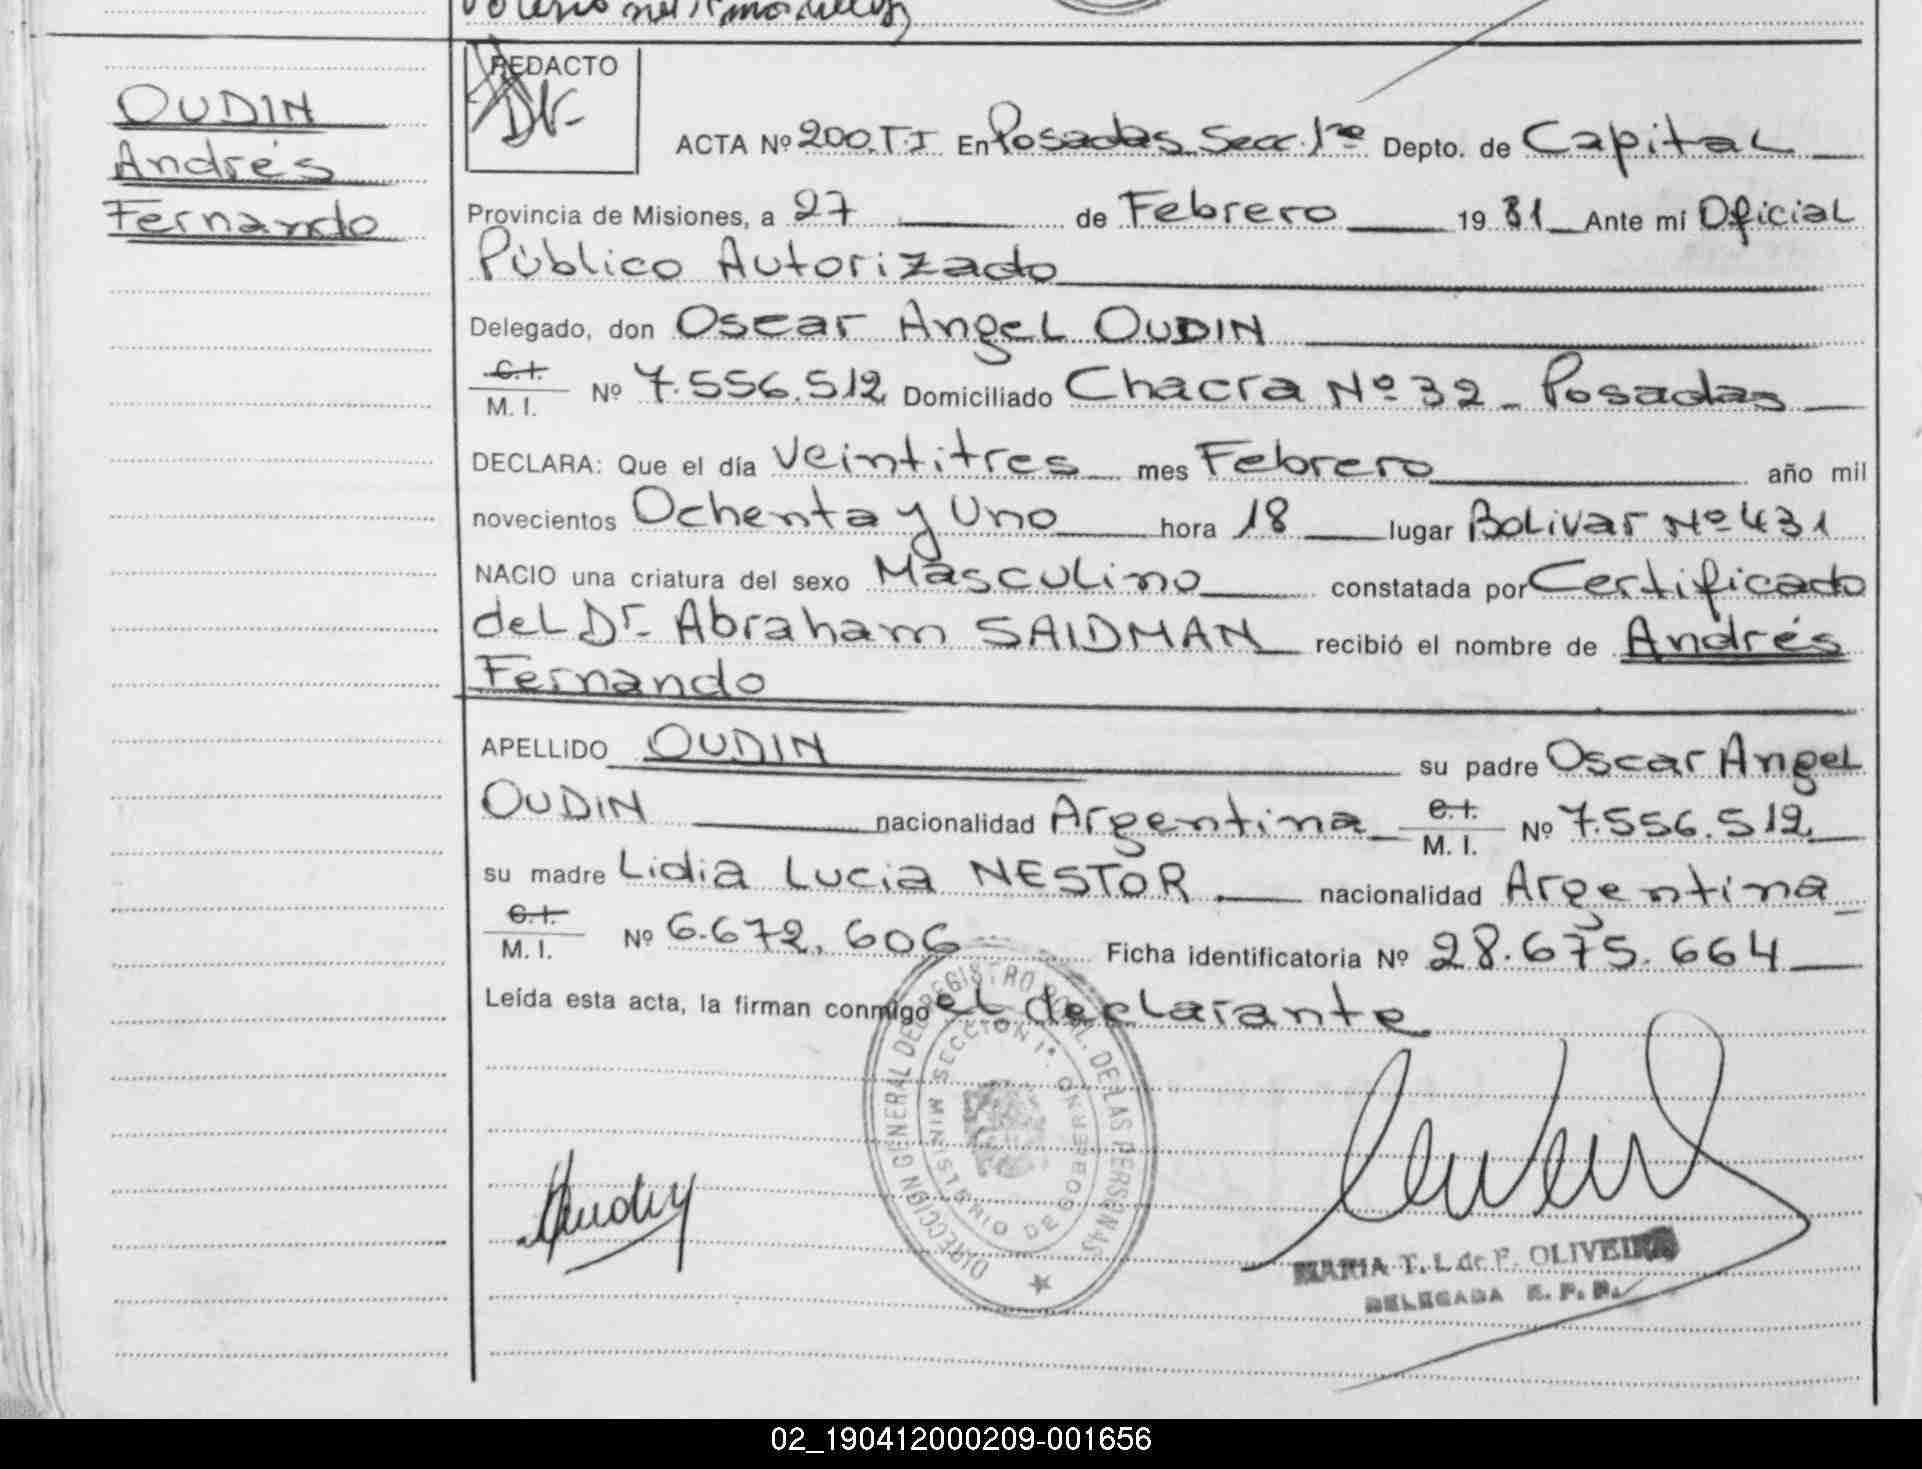 OUDIN
Andrés
Fernando
REDACTO
ACTA Nº 200.T.I En Posadas Secc. 1ra Depto. de Capital
Provincia de Misiones, a 27 de Febrero 19 81 Ante mí Oficial
Público Autorizado
Delegado, don Oscar Angel OUDIN
C.I.
M. I. Nº 7.556.512 Domiciliado Chacra Nº 32 - Posadas
DECLARA: Que el día Veintitres mes Febrero año mil
novecientos Ochenta y Uno hora 18 lugar Bolivar Nº 431
NACIO una criatura del sexo Masculino constatada por Certificado
del Dr. Abraham SAIDMAN recibió el nombre de Andrés
Fernando
APELLIDO OUDIN su padre Oscar Angel
OUDIN nacionalidad Argentina C.I. M. I. Nº 7.556.512
su madre Lidia Lucia NESTOR nacionalidad Argentina
C.I.
M. I. Nº 6.672.606 Ficha identificatoria Nº 28.675.664
Leída esta acta, la firman conmigo el declarante
DIRECCION GENERAL DEL REGISTRO PCIAL. DE LAS PERSONAS
SECCION 1ª
MINISTERIO DE GOBIERNO
MARIA T. L. de F. OLIVEIRA
DELEGADA R. P. P.
02_190412000209-001656